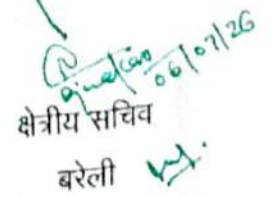 06/07/26
क्षेत्रीय सचिव
बरेली